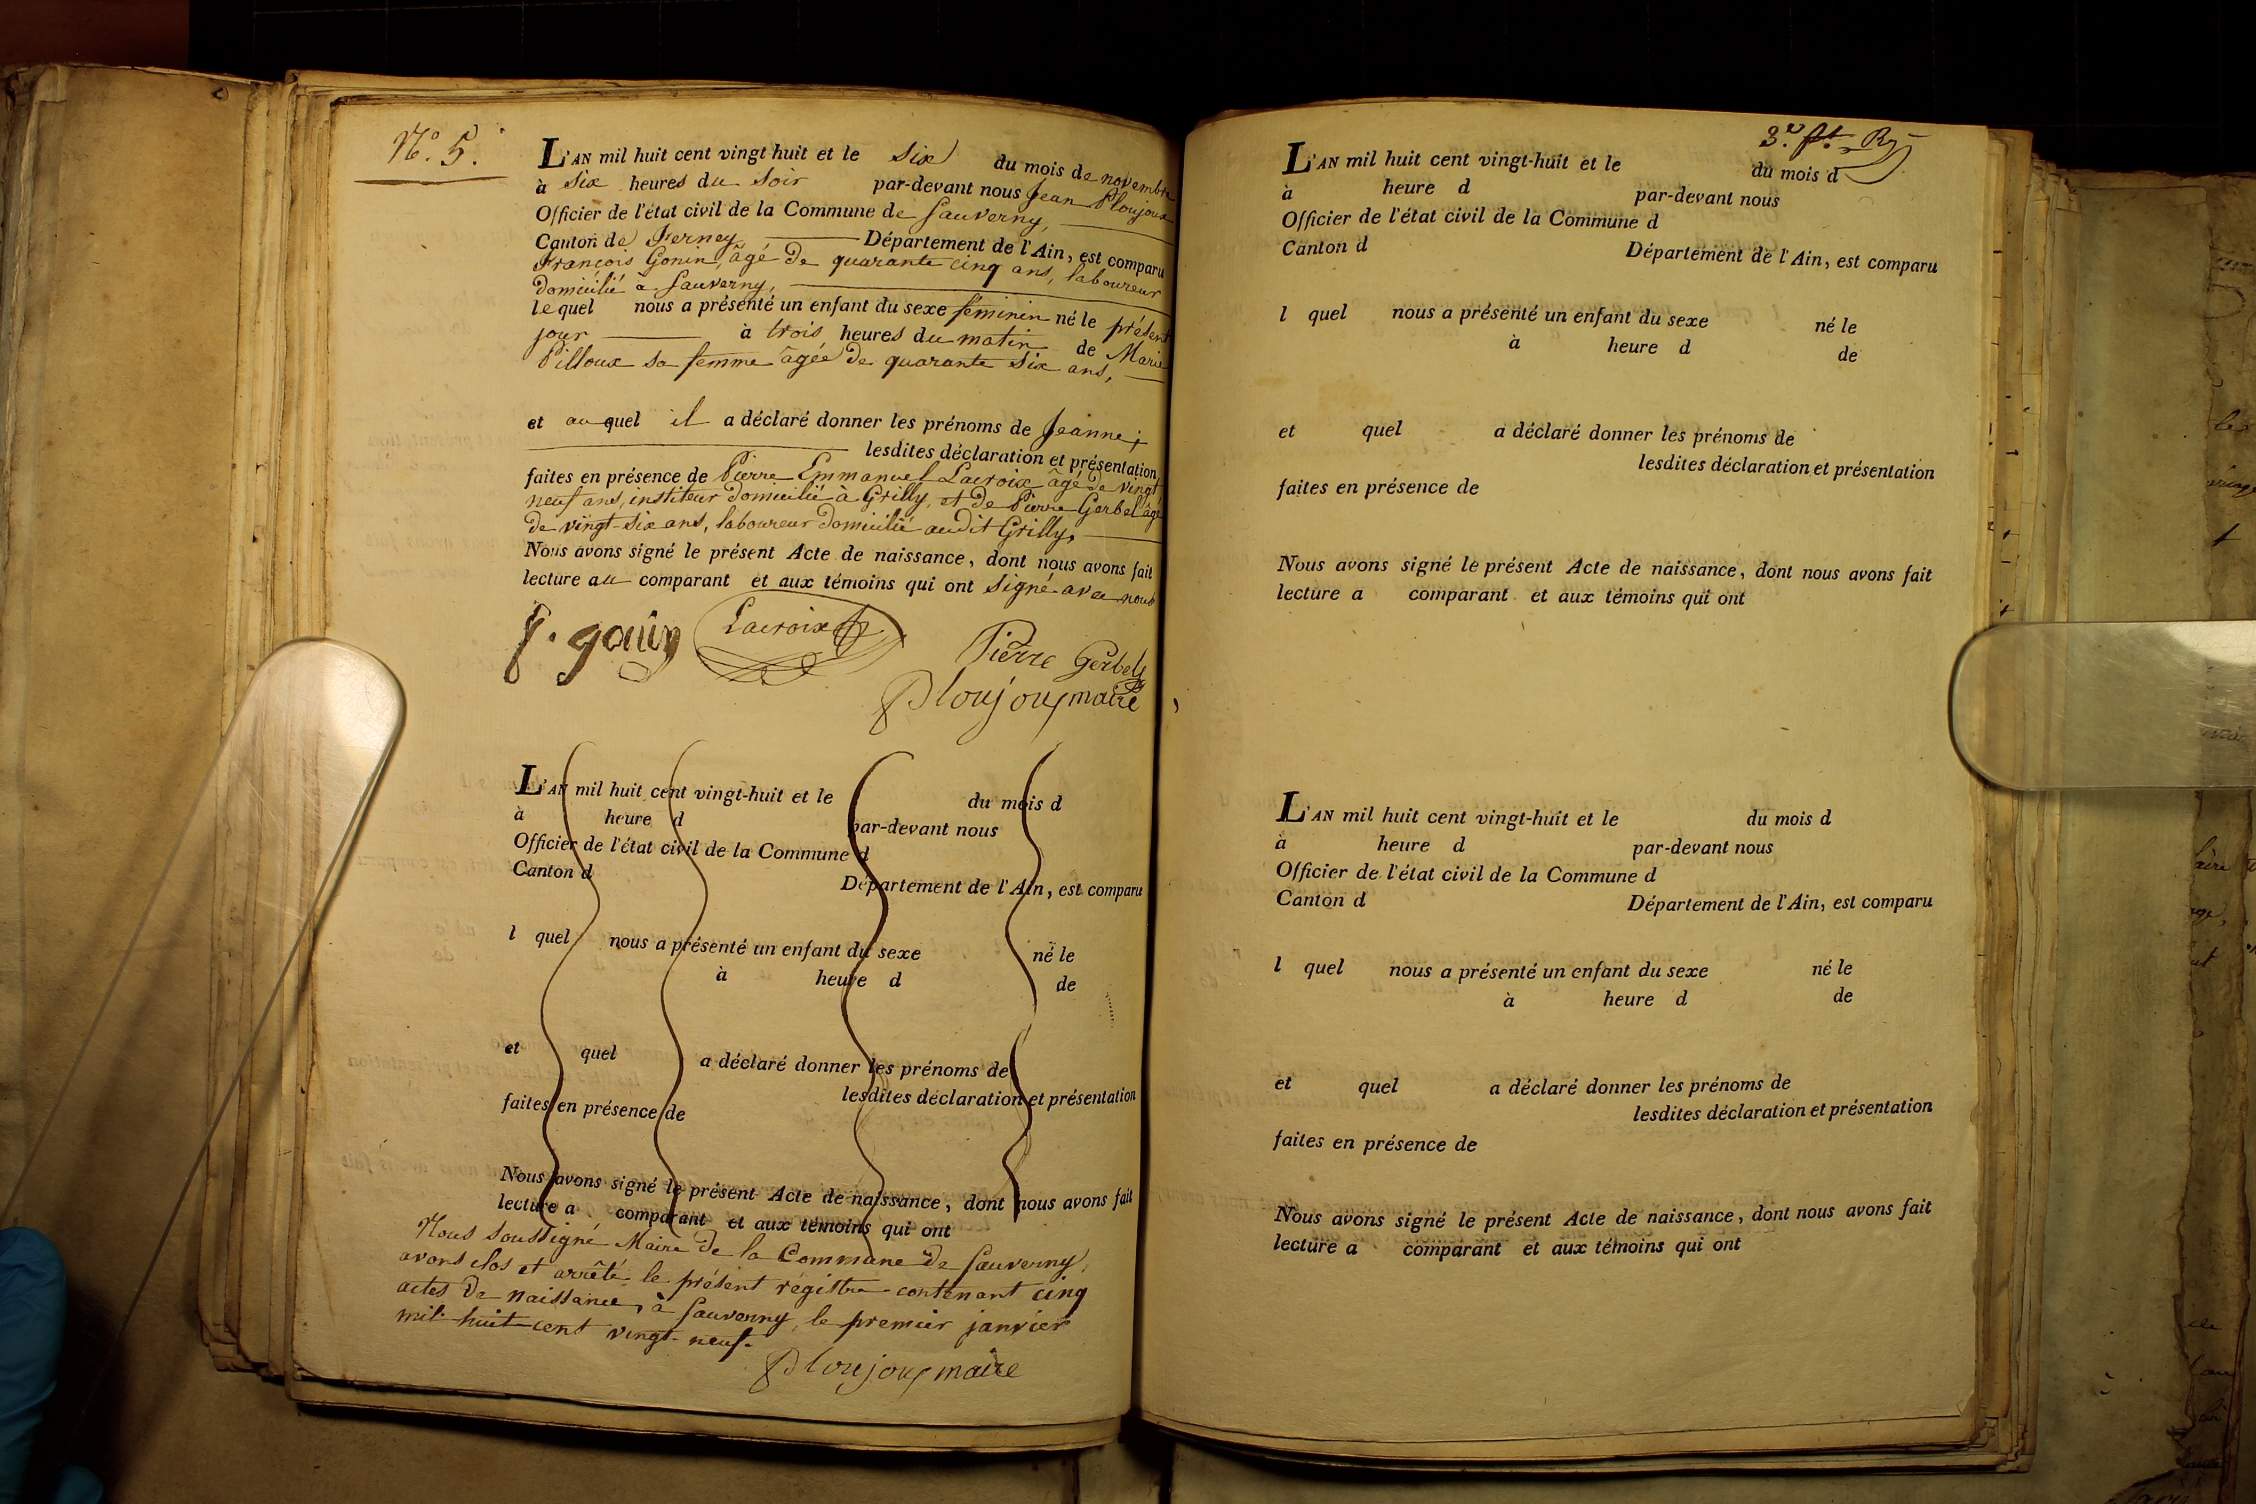 N.° 5.
L'AN mil huit cent vingt huit et le six du mois de novembre
à six heures du soir par-devant nous Jean Ploujoux
Officier de l'état civil de la Commune de Sauverny,
Canton de Ferney Département de l'Ain, est comparu
François Gonin, âgé de quarante cinq ans, laboureur
domicilié à Sauverny,
lequel nous a présenté un enfant du sexe féminin né le présent
jour à trois heures du matin de Marie
Pilloux sa femme âgée de quarante six ans,
et au quel il a déclaré donner les prénoms de Jeanne;
lesdites déclaration et présentation
faites en présence de Pierre Emmanuel Lacroix âgé de vingt
neuf ans, instituteur domicilié à Grilly, et de Pierre Gerbel âgé
de vingt-six ans, laboureur domicilié audit Grilly,
Nous avons signé le présent Acte de naissance, dont nous avons fait
lecture au comparant et aux témoins qui ont signé avec nous
f. gonin Lacroix
Pierre Gerbel
Ploujoux maire
L'AN mil huit cent vingt-huit et le du mois d
à heure d par-devant nous
Officier de l'état civil de la Commune d
Canton d Département de l'Ain, est comparu
l quel nous a présenté un enfant du sexe né le
à heure d de
et quel a déclaré donner les prénoms de
lesdites déclaration et présentation
faites en présence de
Nous avons signé le présent Acte de naissance, dont nous avons fait
lecture a comparant et aux témoins qui ont
Nous soussigné Maire de la Commune de Sauverny,
avons clos et arrêté le présent régistre contenant cinq
actes de naissance, à Sauverny, le premier janvier
mil huit cent vingt-neuf.
Ploujoux maire
L'AN mil huit cent vingt-huit et le du mois d
à heure d par-devant nous
Officier de l'état civil de la Commune d
Canton d Département de l'Ain, est comparu
l quel nous a présenté un enfant du sexe né le
à heure d de
et quel a déclaré donner les prénoms de
lesdites déclaration et présentation
faites en présence de
Nous avons signé le présent Acte de naissance, dont nous avons fait
lecture a comparant et aux témoins qui ont
L'AN mil huit cent vingt-huit et le du mois d
à heure d par-devant nous
Officier de l'état civil de la Commune d
Canton d Département de l'Ain, est comparu
l quel nous a présenté un enfant du sexe né le
à heure d de
et quel a déclaré donner les prénoms de
lesdites déclaration et présentation
faites en présence de
Nous avons signé le présent Acte de naissance, dont nous avons fait
lecture a comparant et aux témoins qui ont